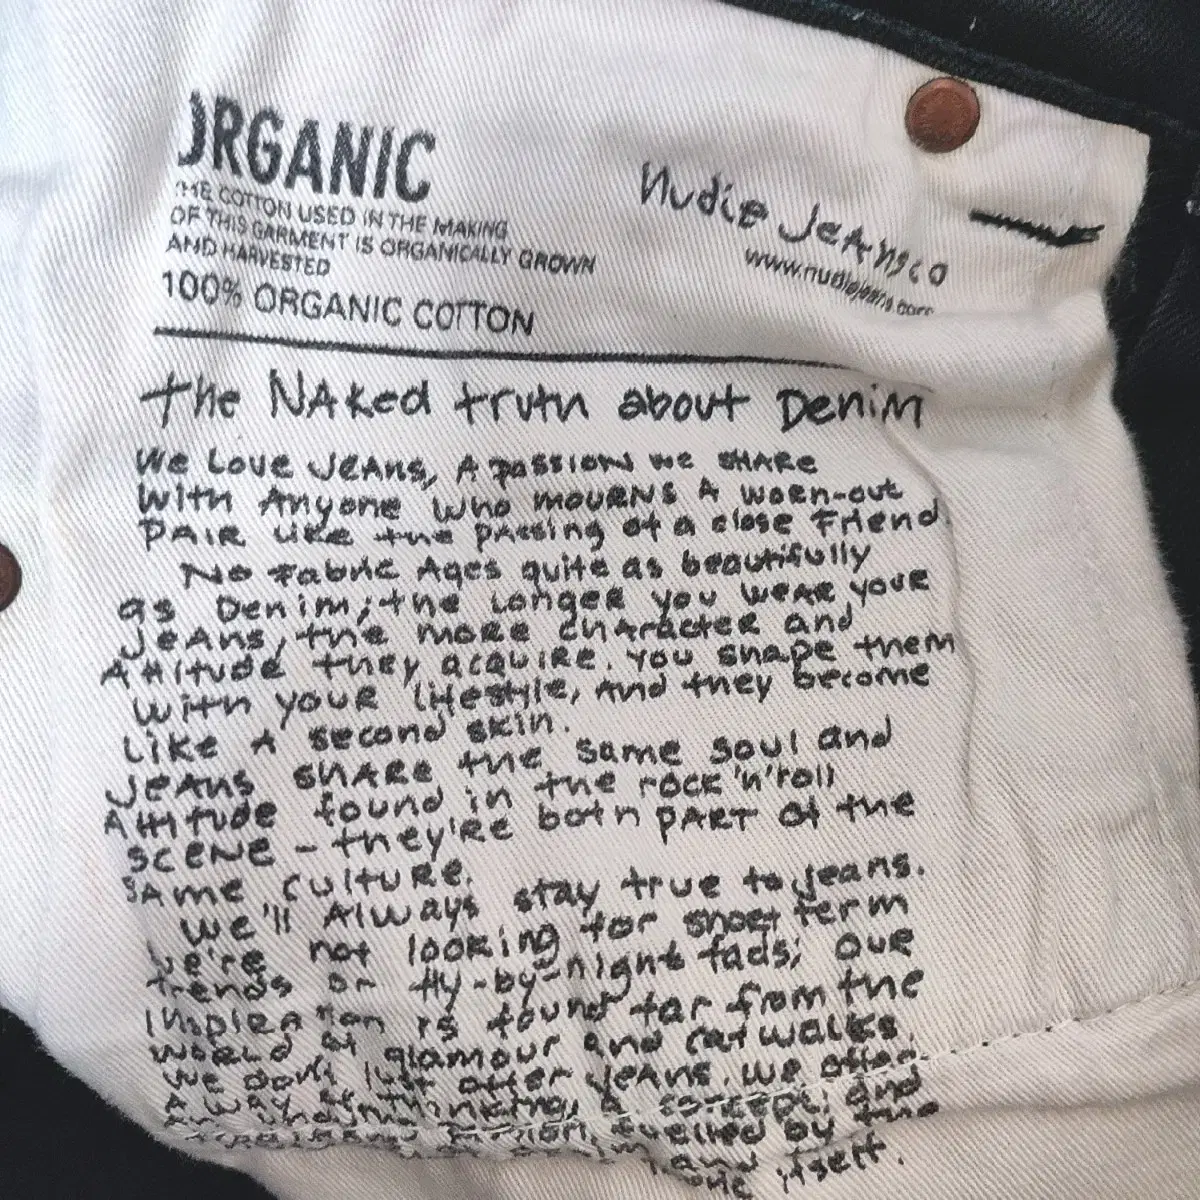 ORGANIC
THE COTTON USED IN THE MAKING
OF THIS GARMENT IS ORGANICALLY GROWN
AND HARVESTED
100% ORGANIC COTTON
Nudie Jeans co
www.nudiejeans.com
the NAKed truth about Denim
We Love JEANS, A passion we SHARE
with Anyone who mourns A worn-out
PAIR Like the passing of a close friend.
No fabric Ages quite as beautifully
as Denim; the Longer you WEAR your
JEANS, the more character and
Attitude they acquire. You shape them
with your lifestyle, and they become
Like A second skin.
Jeans SHARE the same soul and
Attitude found in the rock 'n' roll
SCENE - they're both PART of the
SAME culture.
We'll Always stay true to jeans.
We're not looking for short term
trends or fly-by-night fads; our
inspiration is found far from the
world of glamour and catwalks.
We don't just offer jeans, we offer
A way of thinking, a concept, and
fuelled by the
and
itself.